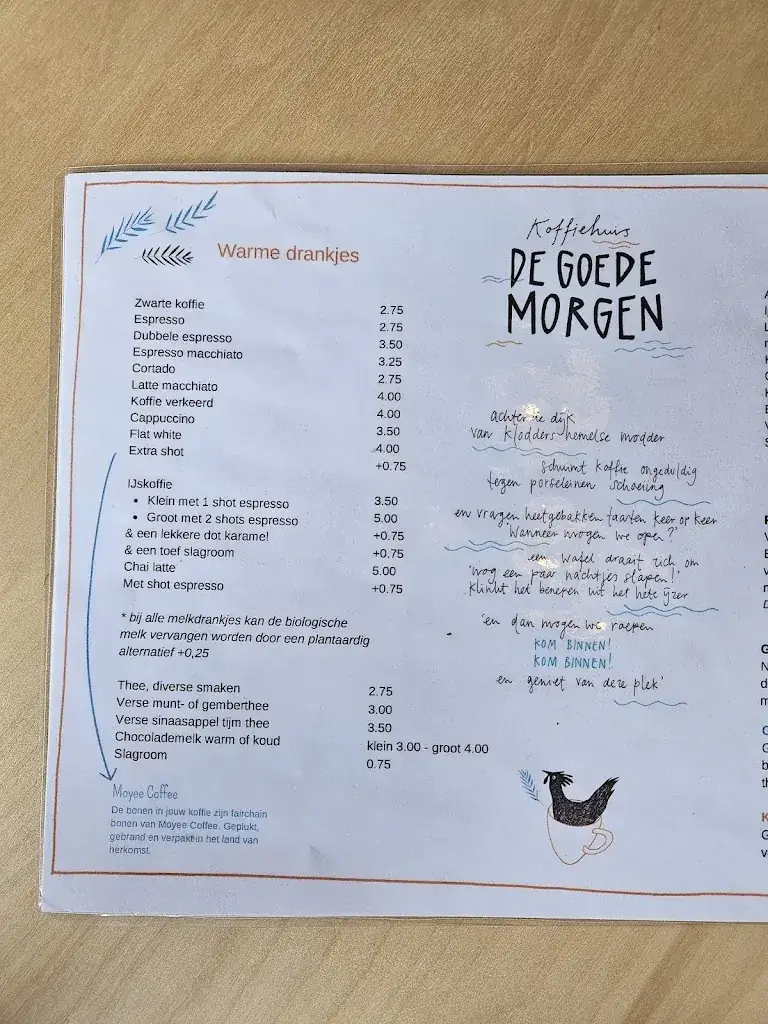 Warme drankjes
Zwarte koffie 2.75
Espresso 2.75
Dubbele espresso 3.50
Espresso macchiato 3.25
Cortado 2.75
Latte macchiato 4.00
Koffie verkeerd 4.00
Cappuccino 3.50
Flat white 4.00
Extra shot +0.75
IJskoffie
• Klein met 1 shot espresso 3.50
• Groot met 2 shots espresso 5.00
& een lekkere dot karamel +0.75
& een toef slagroom +0.75
Chai latte 5.00
Met shot espresso +0.75
* bij alle melkdrankjes kan de biologische
melk vervangen worden door een plantaardig
alternatief +0,25
Thee, diverse smaken 2.75
Verse munt- of gemberthee 3.00
Verse sinaasappel tijm thee 3.50
Chocolademelk warm of koud klein 3.00 - groot 4.00
Slagroom 0.75
Moyee Coffee
De bonen in jouw koffie zijn fairchain
bonen van Moyee Coffee. Geplukt,
gebrand en verpakt in het land van
herkomst.
Koffiehuis
DE GOEDE
MORGEN
achter de dijk
van klodders hemelse modder
schuimt koffie ongeduldig
tegen porseleinen schoeiing
en vragen heetgebakken taarten keer op keer
'Wanneer mogen we open?'
een wafel draait zich om
'nog een paar nachtjes slapen!'
klinkt het beneden uit het hete ijzer
'en dan mogen we roepen
KOM BINNEN!
KOM BINNEN!
en geniet van deze plek'